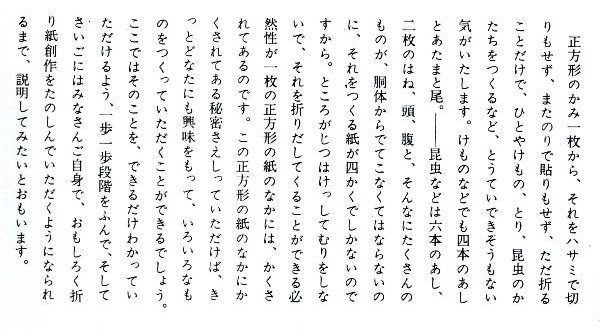 正方形のかみ一枚から、それをハサミで切
りもせず、またのりで貼りもせず、ただ折る
ことだけで、ひとやけもの、とり、昆虫のか
たちをつくるなど、とうていできそうもない
気がいたします。けものなどでも四本のあし
とあたまと尾。――昆虫などは六本のあし、
二枚のはね、頭、腹と、そんなにたくさんの
ものが、胴体からでてこなくてはならないの
に、それをつくる紙が四かくでしかないので
すから。ところがじつはけっしてむりをしな
いで、それを折りだしてくることができる必
然性が一枚の正方形の紙のなかには、かくさ
れてあるのです。この正方形の紙のなかにか
くされてある秘密さえしっていただけば、き
っとどなたにも興味をもって、いろいろなも
のをつくっていただくことができるでしょう。
ここではそのことを、できるだけわかってい
ただけるよう、一歩一歩段階をふんで、そして
さいごにはみなさんご自身で、おもしろく折
り紙創作をたのしんでいただくようになられ
るまで、説明してみたいとおもいます。